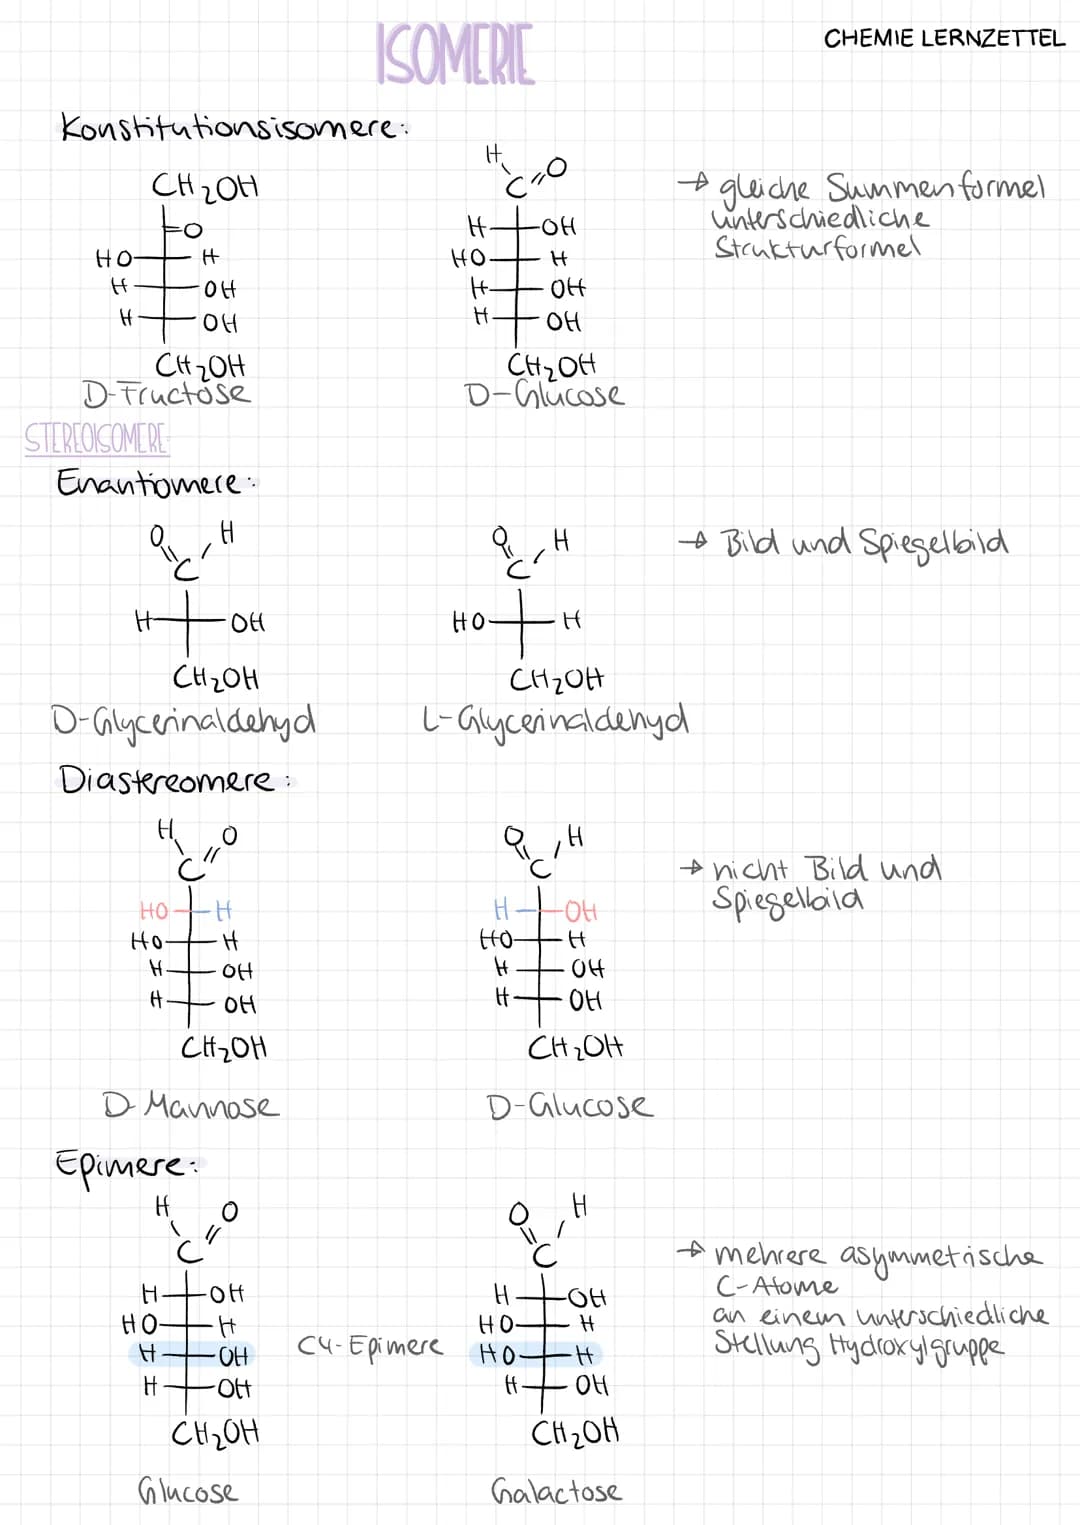 ISOMERIE
CHEMIE LERNZETTEL
Konstitutionsisomere:
CH₂OH
O
HO H
H OH
H OH
CH₂OH
D-Fructose
H O
C
H OH
HO H
H OH
H OH
CH₂OH
D-Glucose
→ gleiche Summenformel
unterschiedliche
Strukturformel
STEREOISOMERE:
Enantiomere:
O H
C
H OH
CH₂OH
D-Glycerinaldehyd
O H
C
HO H
CH₂OH
L-Glycerinaldehyd
→ Bild und Spiegelbild
Diastereomere:
H O
C
HO H
HO H
H OH
H OH
CH₂OH
D-Mannose
O H
C
H OH
HO H
H OH
H OH
CH₂OH
D-Glucose
→ nicht Bild und
Spiegelbild
Epimere:
H O
C
H OH
HO H
H OH
H OH
CH₂OH
Glucose
C4-Epimere
O H
C
H OH
HO H
HO H
H OH
CH₂OH
Galactose
→ mehrere asymmetrische
C-Atome
an einem unterschiedliche
Stellung Hydroxylgruppe